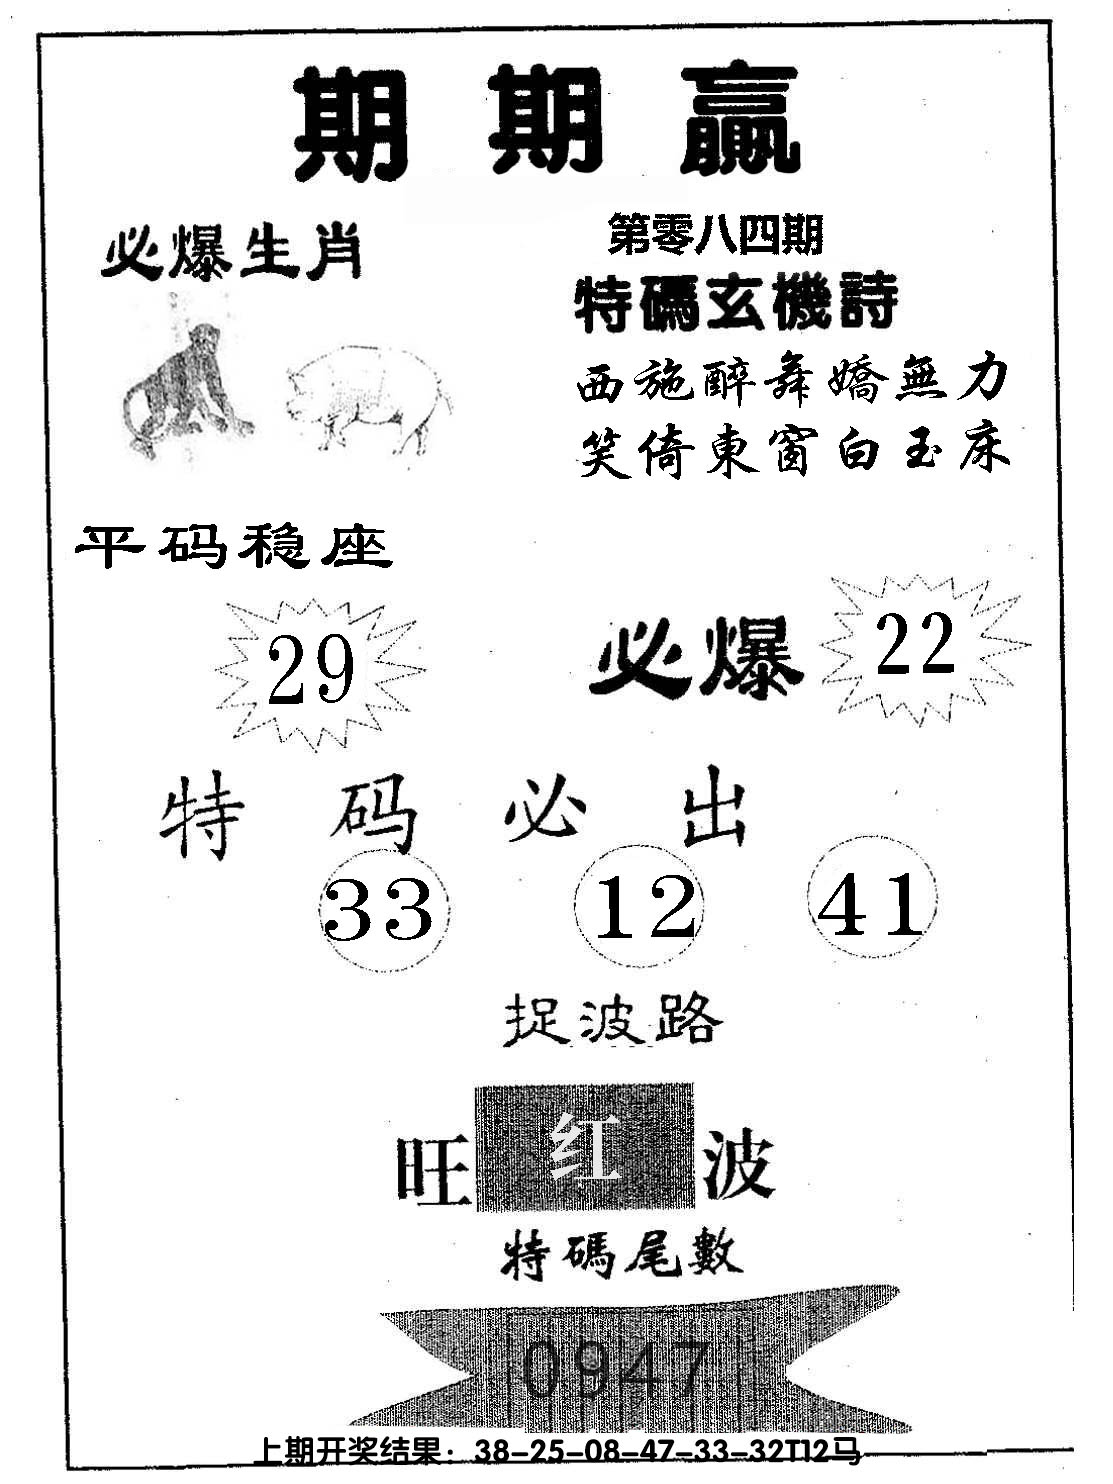 期期赢
必爆生肖
第零八四期
特碼玄機詩
西施醉舞嬌無力
笑倚東窗白玉床
平码稳座
29
必爆 22
特码必出
33 12 41
捉波路
旺红波
特碼尾數
0947
上期开奖结果：38-25-08-47-33-32T12马